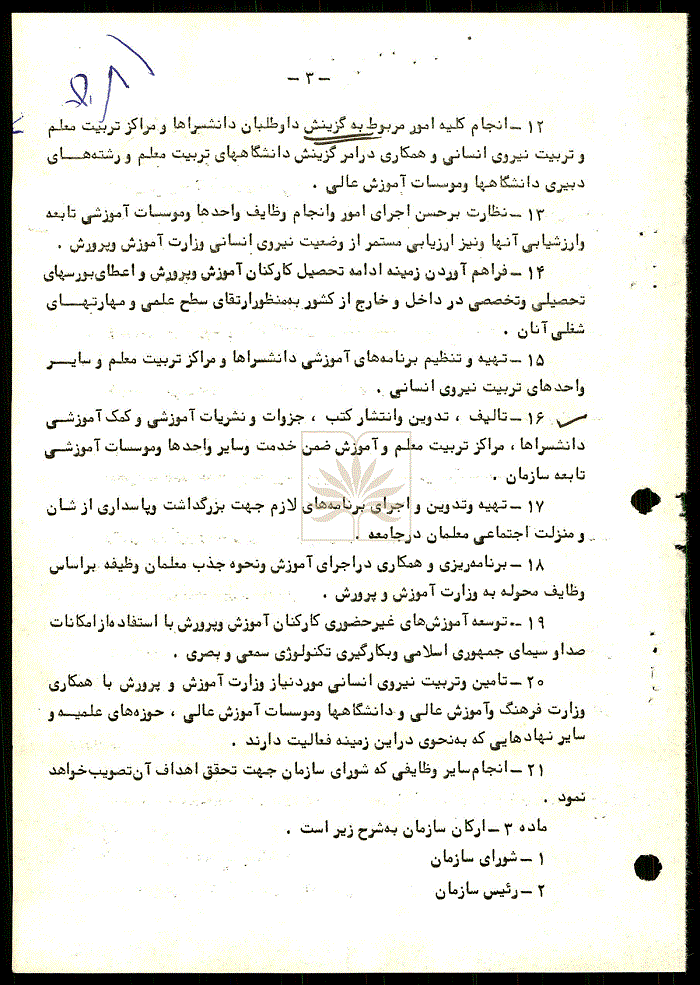 - ۳ -
۱۲ - انجام کلیه امور مربوط به گزینش داوطلبان دانشسراها و مراکز تربیت معلم
و تربیت نیروی انسانی و همکاری درامر گزینش دانشگاههای تربیت معلم و رشته‌های
دبیری دانشگاهها وموسسات آموزش عالی .
۱۳ - نظارت برحسن اجرای امور وانجام وظایف واحدها وموسسات آموزشی تابعه
وارزشیابی آنها ونیز ارزیابی مستمر از وضعیت نیروی انسانی وزارت آموزش وپرورش .
۱۴ - فراهم آوردن زمینه ادامه تحصیل کارکنان آموزش وپرورش و اعطای‌بورسهای
تحصیلی وتخصصی در داخل و خارج از کشور به‌منظورارتقای سطح علمی و مهارتهای
شغلی آنان .
۱۵ - تهیه و تنظیم برنامه‌های آموزشی دانشسراها و مراکز تربیت معلم و سایر
واحدهای تربیت نیروی انسانی .
۱۶ - تالیف ، تدوین وانتشار کتب ، جزوات و نشریات آموزشی و کمک آموزشی
دانشسراها ، مراکز تربیت معلم و آموزش ضمن خدمت وسایر واحدها وموسسات آموزشی
تابعه سازمان .
۱۷ - تهیه وتدوین و اجرای برنامه‌های لازم جهت بزرگداشت وپاسداری از شان
و منزلت اجتماعی معلمان درجامعه .
۱۸ - برنامه‌ریزی و همکاری دراجرای آموزش ونحوه جذب معلمان وظیفه براساس
وظایف محوله به وزارت آموزش و پرورش .
۱۹ - توسعه آموزش‌های غیرحضوری کارکنان آموزش وپرورش با استفاده‌ازامکانات
صداو سیمای جمهوری اسلامی وبکارگیری تکنولوژی سمعی و بصری .
۲۰ - تامین وتربیت نیروی انسانی موردنیاز وزارت آموزش و پرورش با همکاری
وزارت فرهنگ وآموزش عالی و دانشگاهها وموسسات آموزش عالی ، حوزه‌های علمیه و
سایر نهادهایی که به‌نحوی دراین زمینه فعالیت دارند .
۲۱ - انجام‌سایر وظایفی که شورای سازمان جهت تحقق اهداف آن‌تصویب‌خواهد
نمود .
ماده ۳ - ارکان سازمان به‌شرح زیر است .
۱ - شورای سازمان
۲ - رئیس سازمان